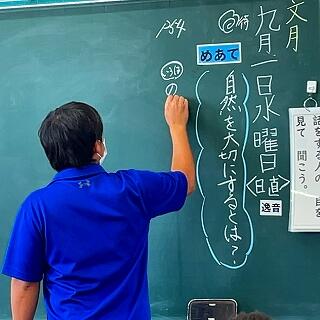 文月
九月一日水曜日
<日直>
逸音
めあて
自然を大切にするとは?
P64
の
話をする人の 目を
見て 聞こう。